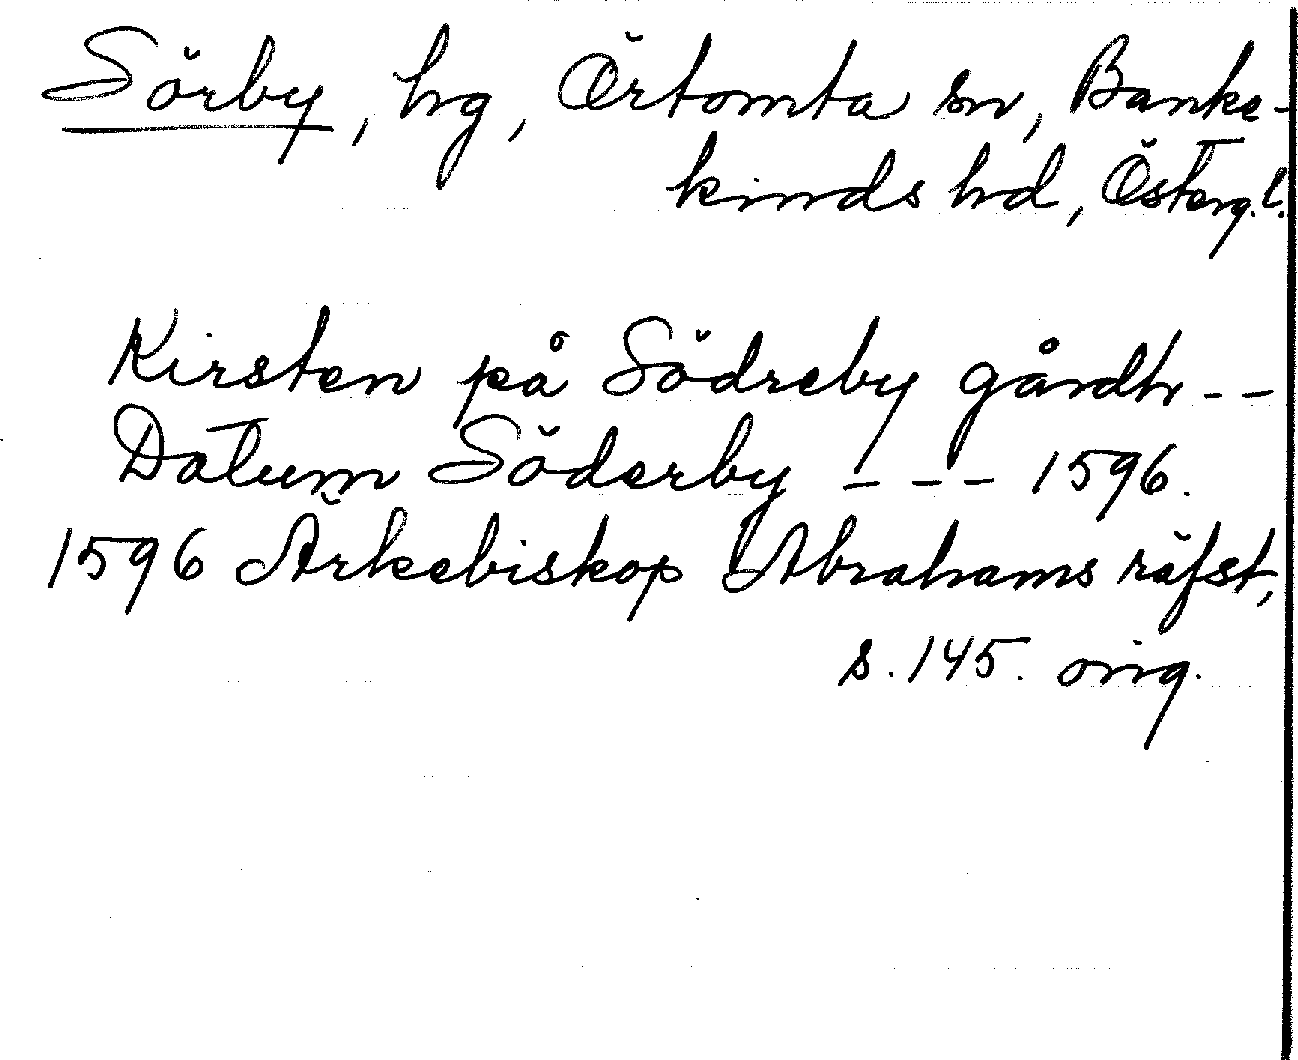 Sörby, hg, Örtomta sn, Banke-
kinds hd, Österg.l.
Kirsten på Södreby gårdh --
Datum Söderby --- 1596.
1596 Ärkebiskop Abrahams räfst,
s. 145. orig.